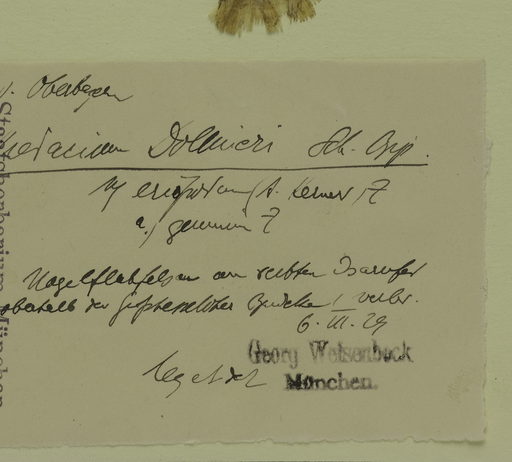 Oberbayern
Hieracium Dollineri Sch. Bip.
eriopodum (A. Kerner) Z
a.) genuinum Z
Nagelfluhfelsen am rechten Isarufer
oberhalb der Brücke, verbr.
6. III. 29
leg. et det.
Georg Weisenbeck
München.
Staatsherbarium München